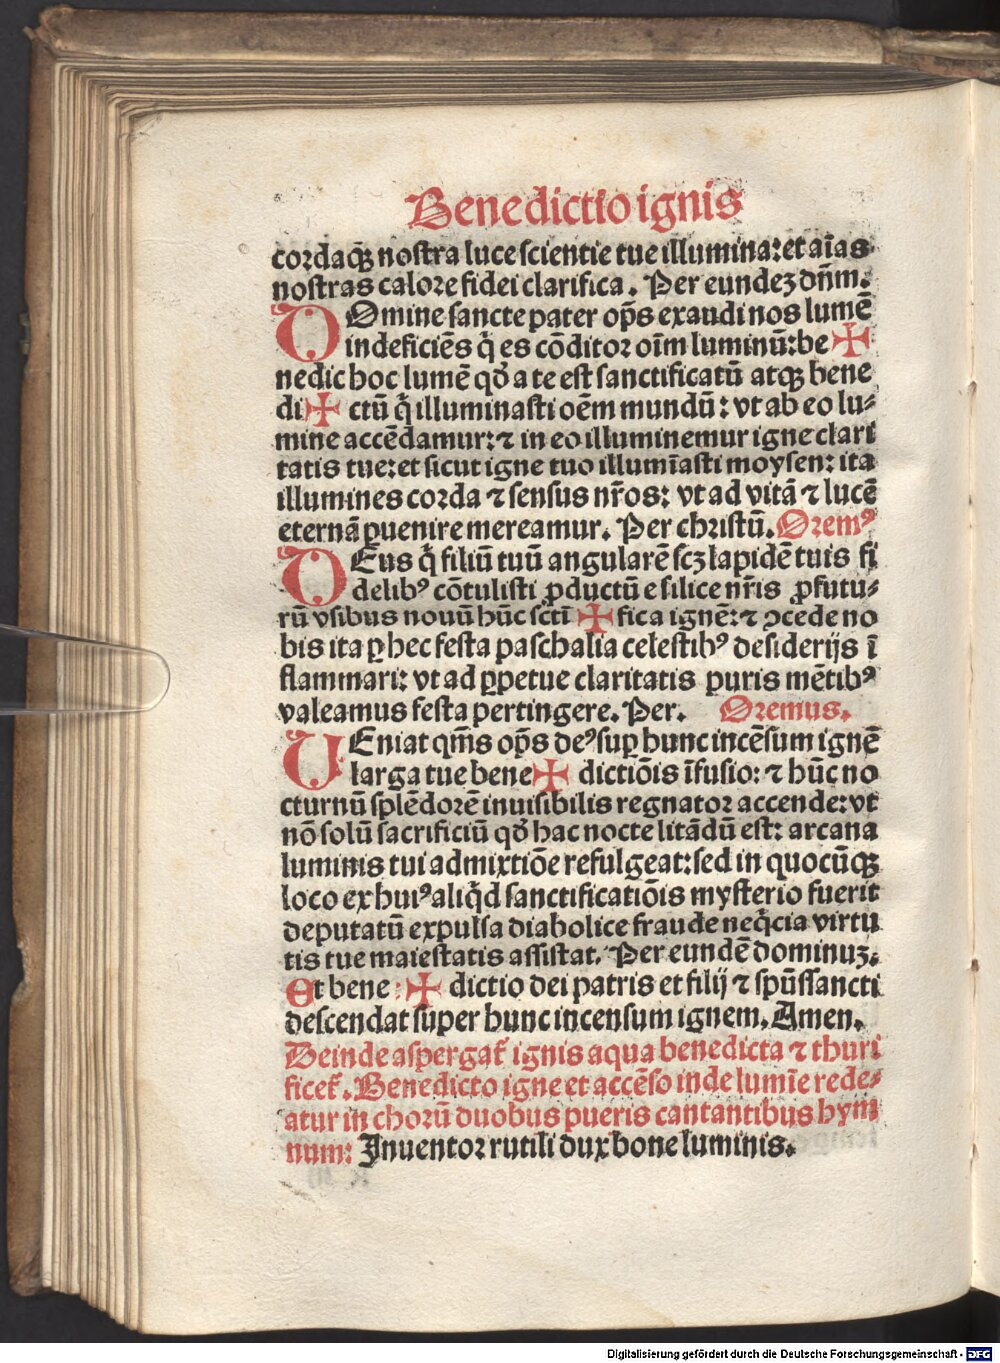 Benedictio ignis
cordaqꝫ nostra luce scientie tue illumina: et aīas
nostras calore fidei clarifica. Per eundeꝫ dn̄m.
DOmine sancte pater op̄s exaudi nos lumē
indeficiēs q̄ es cōditor oīm luminū: be ✠
nedic hoc lumē qđ a te est sanctificatū atqꝫ bene
di ✠ ctū q̄ illuminasti oēm mundū: vt ab eo lu⸗
mine accēdamur: ⁊ in eo illuminemur igne clari
tatis tue: et sicut igne tuo illumīasti moysen: ita
illumines corda ⁊ sensus nr̄os: vt ad vitā ⁊ lucē
eternā ꝑuenire mereamur. Per christū. Oremꝰ
DEus q̄ filiū tuū angularē scꝫ lapidē tuis fi
delibꝰ cōtulisti ꝓductū e silice nr̄is ꝓfutu⸗
rū vsibus nouū hūc sctī ✠ fica ignē: ⁊ ꝯcede no
bis ita ꝑ hec festa paschalia celestibꝰ desiderijs ī
flammari: vt ad ꝑpetue claritatis puris mētibꝰ
valeamus festa pertingere. Per. Oremus.
UEniat qm̄s op̄s deꝰ suꝑ hunc incēsum ignē
larga tue bene ✠ dictiōis īfusio: ⁊ hūc no
cturnū splēdorē inuisibilis regnator accende: vt
nō solū sacrificiū qđ hac nocte litādū est: arcana
luminis tui admixtiōe refulgeat: sed in quocūqꝫ
loco ex huiꝰ aliq̄d sanctificatiōis mysterio fuerit
deputatū expulsa diabolice fraude neq̄cia virtu
tis tue maiestatis assistat. Per eundē dominuꝫ.
Et bene ✠ dictio dei patris et filij ⁊ spūssancti
descendat super hunc incensum ignem. Amen.
Deinde aspergat᷑ ignis aqua benedicta ⁊ thuri
ficet᷑. Benedicto igne et accēso inde lumīe rede⸗
atur in chorū duobus pueris cantantibus hym
num: Inuentor rutili dux bone luminis.
Digitalisierung gefördert durch die Deutsche Forschungsgemeinschaft - DFG